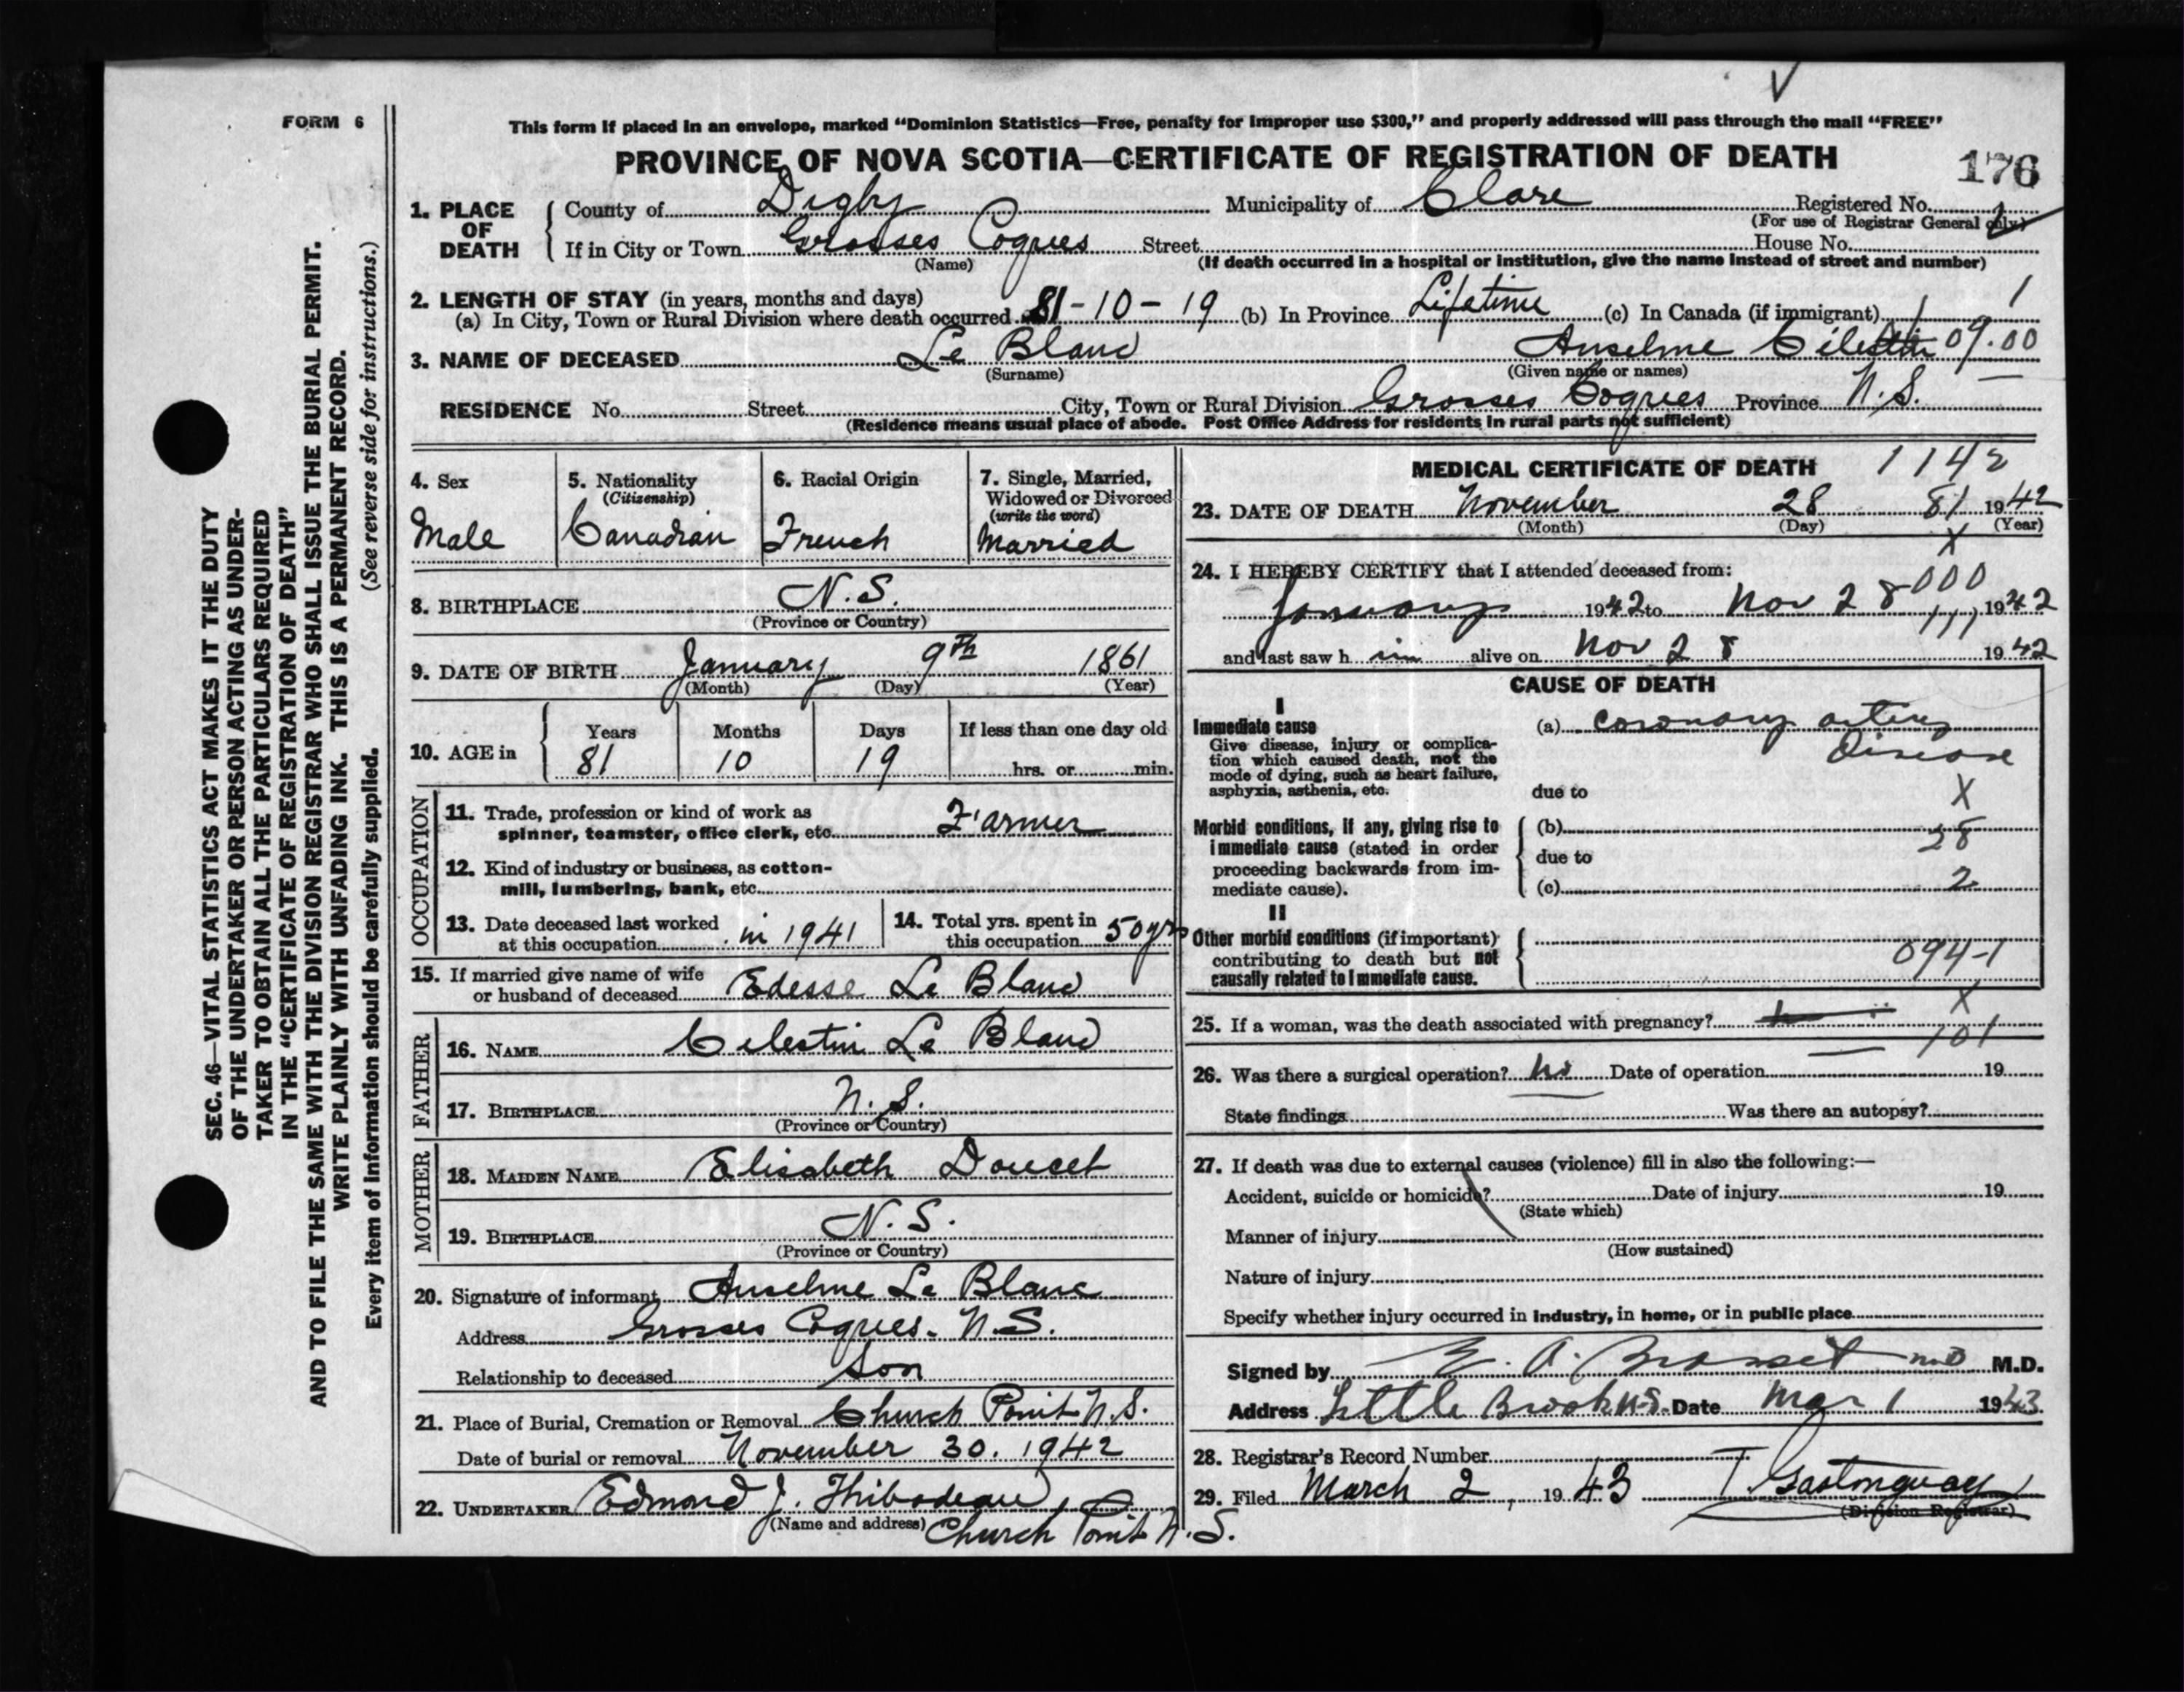 FORM 6
This form if placed in an envelope, marked “Dominion Statistics—Free, penalty for improper use $300,” and properly addressed will pass through the mail “FREE”
PROVINCE OF NOVA SCOTIA—CERTIFICATE OF REGISTRATION OF DEATH 176
SEC. 46—VITAL STATISTICS ACT MAKES IT THE DUTY
OF THE UNDERTAKER OR PERSON ACTING AS UNDER-
TAKER TO OBTAIN ALL THE PARTICULARS REQUIRED
IN THE “CERTIFICATE OF REGISTRATION OF DEATH”
AND TO FILE THE SAME WITH THE DIVISION REGISTRAR WHO SHALL ISSUE THE BURIAL PERMIT.
WRITE PLAINLY WITH UNFADING INK. THIS IS A PERMANENT RECORD.
Every item of information should be carefully supplied. (See reverse side for instructions.)
1. PLACE OF DEATH County of Digby Municipality of Clare Registered No.
(For use of Registrar General only)
If in City or Town Grosses Coques Street House No.
(Name) (If death occurred in a hospital or institution, give the name instead of street and number)
2. LENGTH OF STAY (in years, months and days)
(a) In City, Town or Rural Division where death occurred 81-10-19 (b) In Province Lifetime (c) In Canada (if immigrant) 1
3. NAME OF DECEASED Le Blanc Anselme 09.00
(Surname) (Given name or names)
RESIDENCE No. Street City, Town or Rural Division Grosses Coques Province N.S.
(Residence means usual place of abode. Post Office Address for residents in rural parts not sufficient)
4. Sex 5. Nationality 6. Racial Origin 7. Single, Married,
(Citizenship) Widowed or Divorced
(write the word)
Male Canadian French Married
8. BIRTHPLACE N.S.
(Province or Country)
9. DATE OF BIRTH January 9th 1861
(Month) (Day) (Year)
10. AGE in Years Months Days If less than one day old
81 10 19 hrs. or min.
OCCUPATION
11. Trade, profession or kind of work as
spinner, teamster, office clerk, etc. Farmer
12. Kind of industry or business, as cotton-
mill, lumbering, bank, etc.
13. Date deceased last worked 14. Total yrs. spent in
at this occupation in 1941 this occupation 50 yrs
15. If married give name of wife
or husband of deceased Edesse Le Blanc
FATHER
16. NAME Celestin Le Blanc
17. BIRTHPLACE N.S.
(Province or Country)
MOTHER
18. MAIDEN NAME Elisabeth Doucet
19. BIRTHPLACE N.S.
(Province or Country)
20. Signature of informant Anselme Le Blanc
Address Grosses Coques. N.S.
Relationship to deceased Son
21. Place of Burial, Cremation or Removal Church Point N.S.
Date of burial or removal November 30. 1942
22. UNDERTAKER Edmond J. Thibodeau,
(Name and address) Church Point N.S.
MEDICAL CERTIFICATE OF DEATH 1142
23. DATE OF DEATH November 28 81 1942
(Month) (Day) (Year)
X
24. I HEREBY CERTIFY that I attended deceased from:
000
January 1942 to Nov 28 1942
and last saw him alive on Nov 28 1942
CAUSE OF DEATH
I
Immediate cause (a) coronary artery
Disease
Give disease, injury or complica-
tion which caused death, not the
mode of dying, such as heart failure,
asphyxia, asthenia, etc. due to X
Morbid conditions, if any, giving rise to (b)
immediate cause (stated in order 28
proceeding backwards from im- due to
mediate cause). (c) 2
II
Other morbid conditions (if important)
contributing to death but not 094-1
causally related to immediate cause.
X
25. If a woman, was the death associated with pregnancy?
101
26. Was there a surgical operation? no Date of operation 19
State findings Was there an autopsy?
27. If death was due to external causes (violence) fill in also the following:—
Accident, suicide or homicide? Date of injury 19
(State which)
Manner of injury
(How sustained)
Nature of injury
Specify whether injury occurred in industry, in home, or in public place
Signed by E. A. Brasset MD M.D.
Address Little Brook N.S. Date Mar 1 1943
28. Registrar's Record Number
29. Filed March 2, 1943 T. Gastonguay
(Division Registrar)